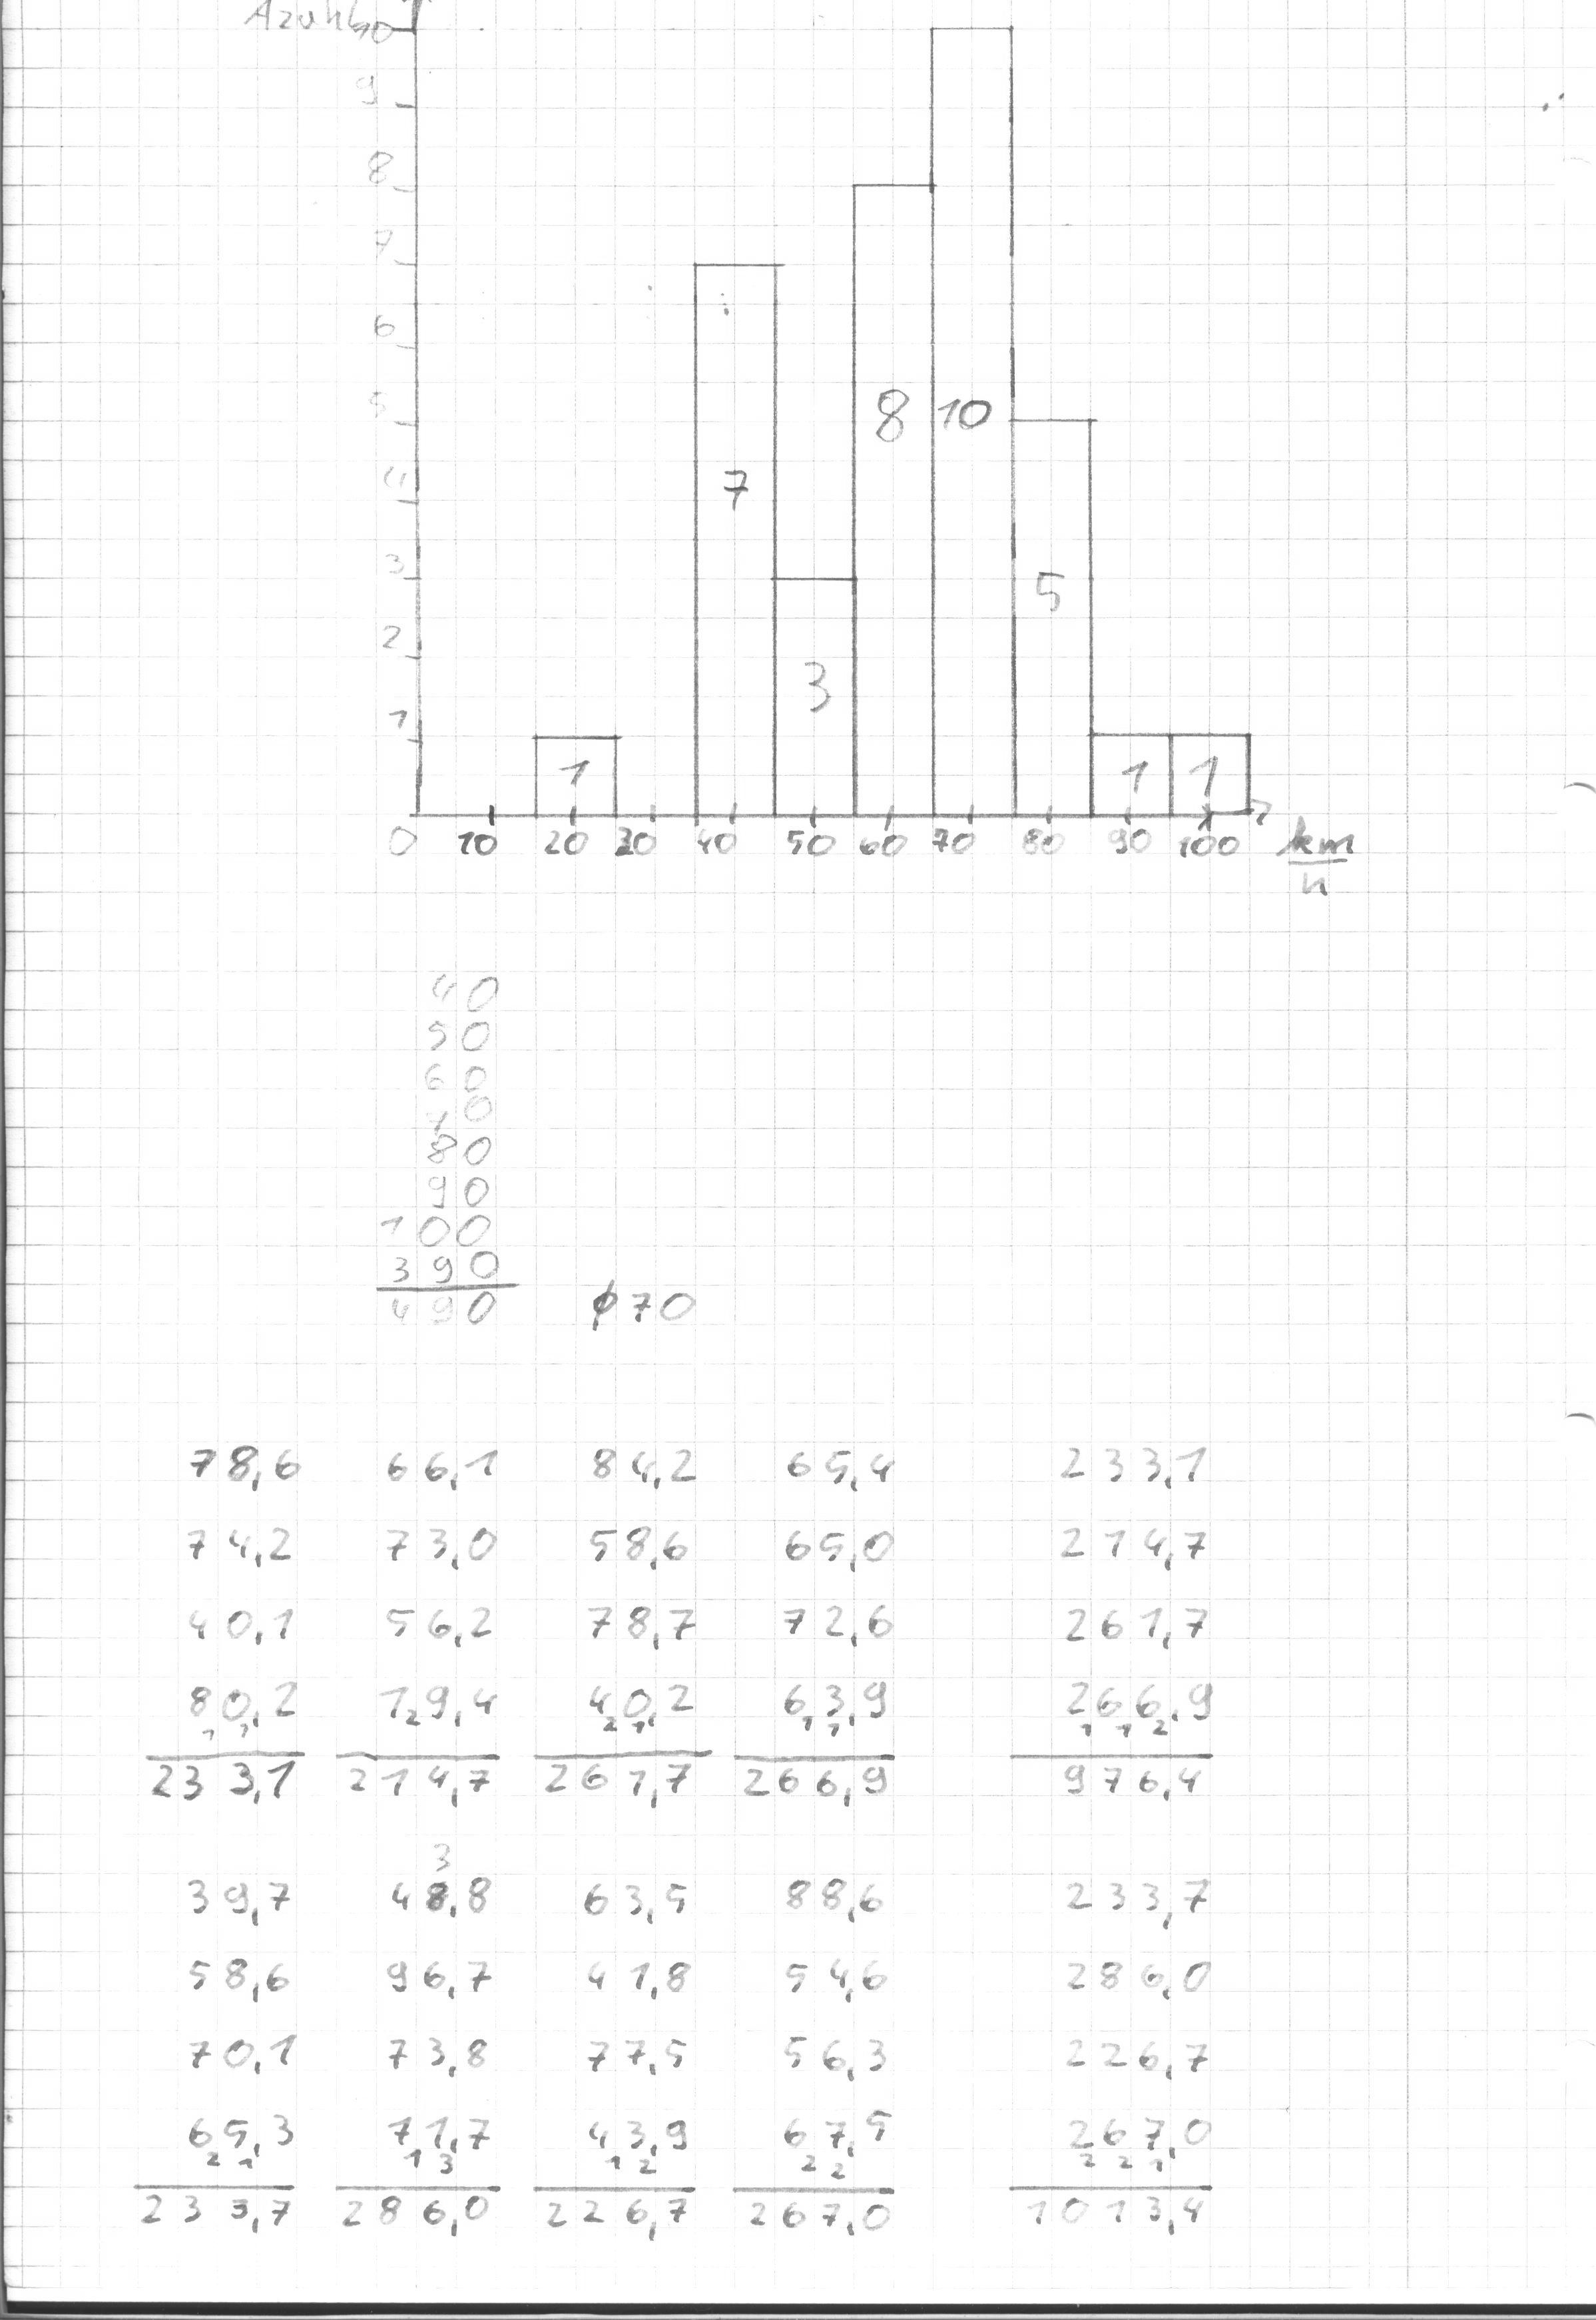 10
9
8
7
6
5
8 10
4
7
3
5
2
3
1
1 1 1
0 10 20 30 40 50 60 70 80 90 100 km/h
40
50
60
70
80
90
100
390
490 ø70
78,6 66,1 84,2 65,4 233,1
74,2 73,0 58,6 65,0 214,7
40,1 56,2 78,7 72,6 261,7
80,2 19,4 40,2 63,9 266,9
1 1 2 2 1 1 1 1 1 2
233,1 214,7 261,7 266,9 976,4
3
39,7 48,8 63,5 88,6 233,7
58,6 96,7 41,8 54,6 286,0
70,1 73,8 77,5 56,3 226,7
65,3 71,7 43,9 67,5 267,0
2 1 1 3 1 2 2 2 2 2 1
233,7 286,0 226,7 267,0 1013,4